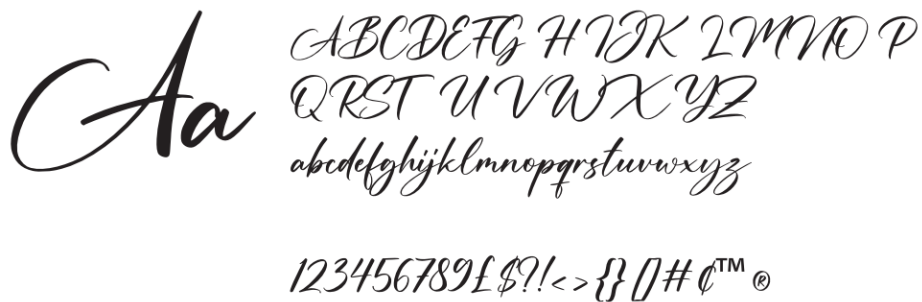 Aa
ABCDEFG HIJK LMNO P
QRST UVWXYZ
abcdefghijklmnopqrstuvwxyz
123456789£$?!<>{}[]#¢™®